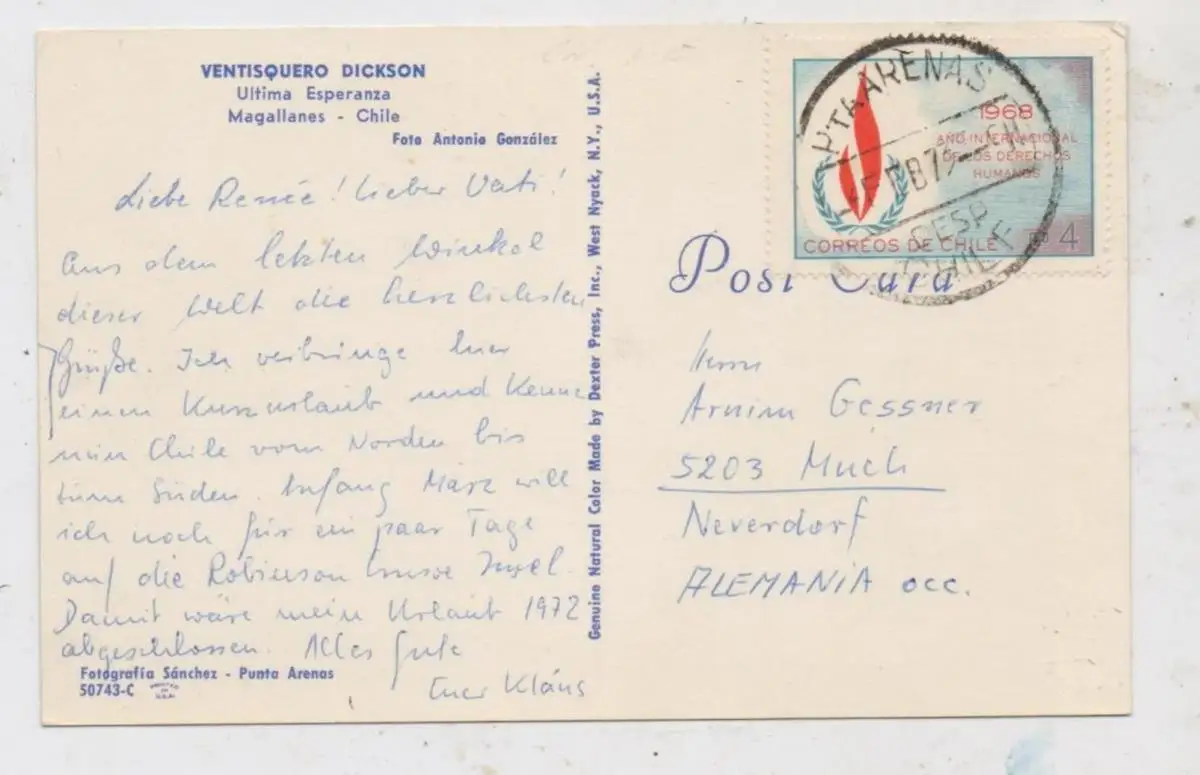 VENTISQUERO DICKSON
Ultima Esperanza
Magallanes - Chile
Foto Antonio González
Liebe Renée! Lieber Vati!
Aus dem letzten Winkel
dieser Welt die herzlichsten
Grüße. Ich verbringe hier
einen Kurzurlaub und kenne
nun Chile vom Norden bis
zum Süden. Anfang März will
ich noch für ein paar Tage
auf die Robinson Crusoe Insel.
Damit wäre mein Urlaub 1972
abgeschlossen. Alles Gute
Euer Klaus
Fotografía Sánchez - Punta Arenas
50743-C
PRINTED IN U.S.A.
Genuine Natural Color Made by Dexter Press, Inc., West Nyack, N.Y., U.S.A.
Post Card
1968
AÑO INTERNACIONAL
DE LOS DERECHOS
HUMANOS
CORREOS DE CHILE Eº 4
PTA ARENAS
DESP
CHILE
Herrn
Arnim Gessner
5203 Much
Neverdorf
ALEMANIA OCC.